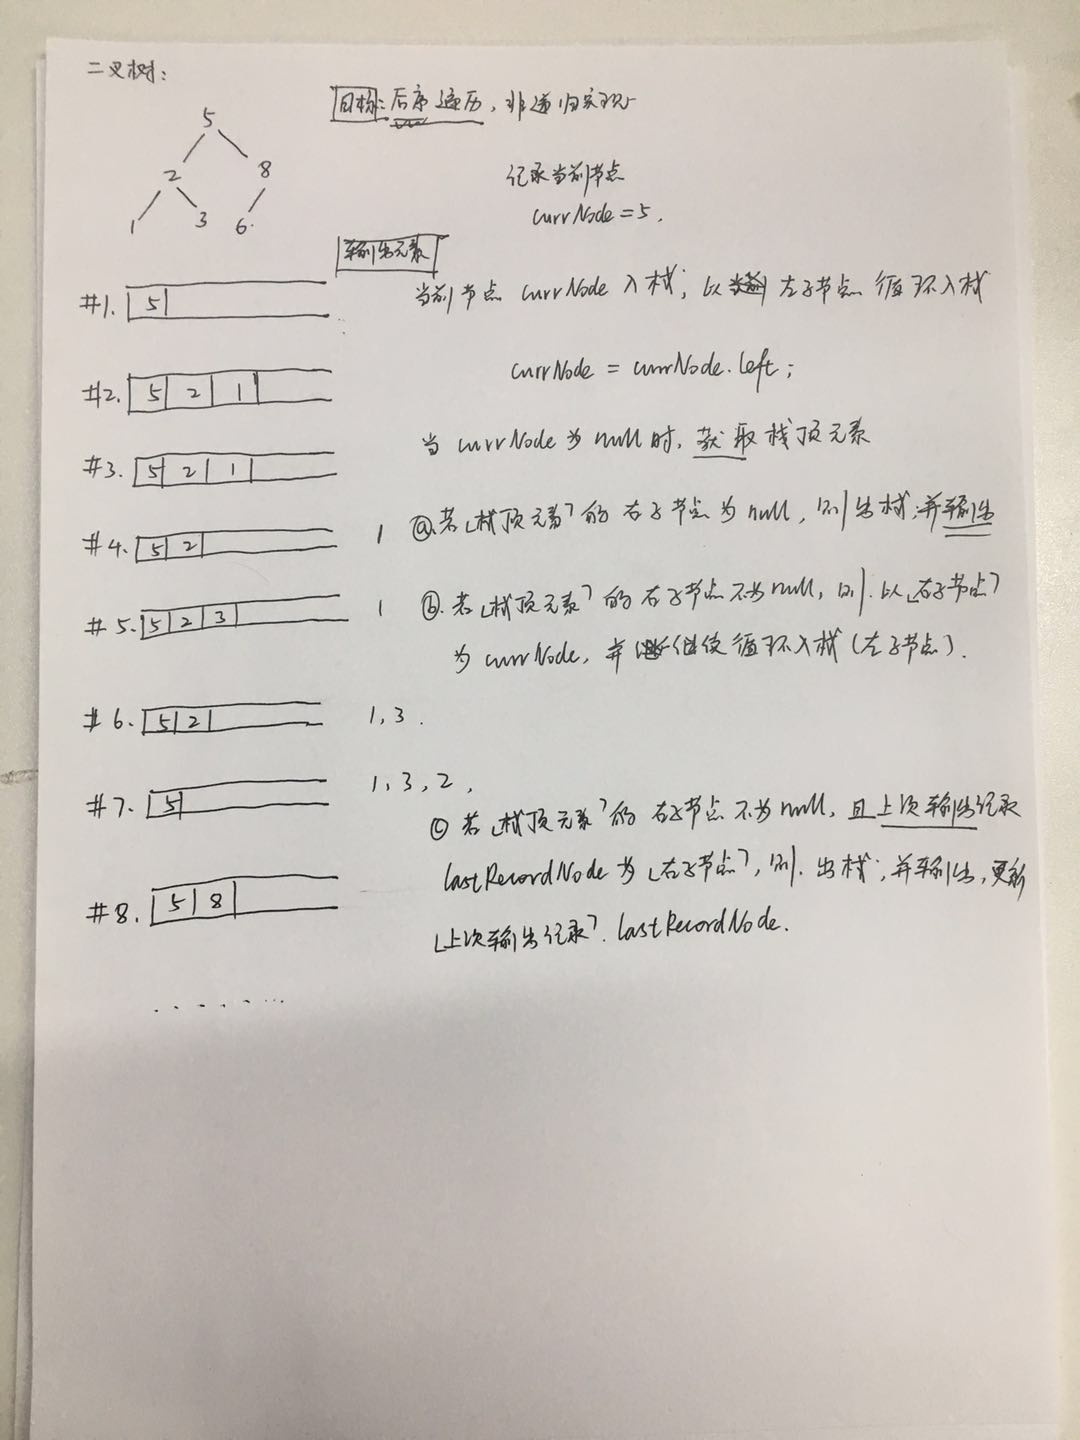 二叉树:
目标: 后序遍历, 非递归实现
5
2 8
1 3 6.
记录当前节点
currNode = 5.
输出元素
#1. 5
当前节点 currNode 入栈; 以 左子节点 循环入栈
#2. 5 2 1
currNode = currNode.left;
当 currNode 为 null 时, 获取栈顶元素
#3. 5 2 1
#4. 5 2 1
ⓐ.若「栈顶元素」的右子节点为null, 则出栈;并输出
#5. 5 2 3 1
ⓑ.若「栈顶元素」的右子节点不为null, 则.以「右子节点」
为 currNode, 并 继续循环入栈(左子节点).
#6. 5 2 1, 3.
#7. 5 1, 3, 2,
ⓒ 若「栈顶元素」的右子节点不为null, 且上次输出记录
lastRecordNode 为「右子节点」, 则. 出栈; 并输出, 更新
「上次输出记录」. lastRecordNode.
#8. 5 8
.......